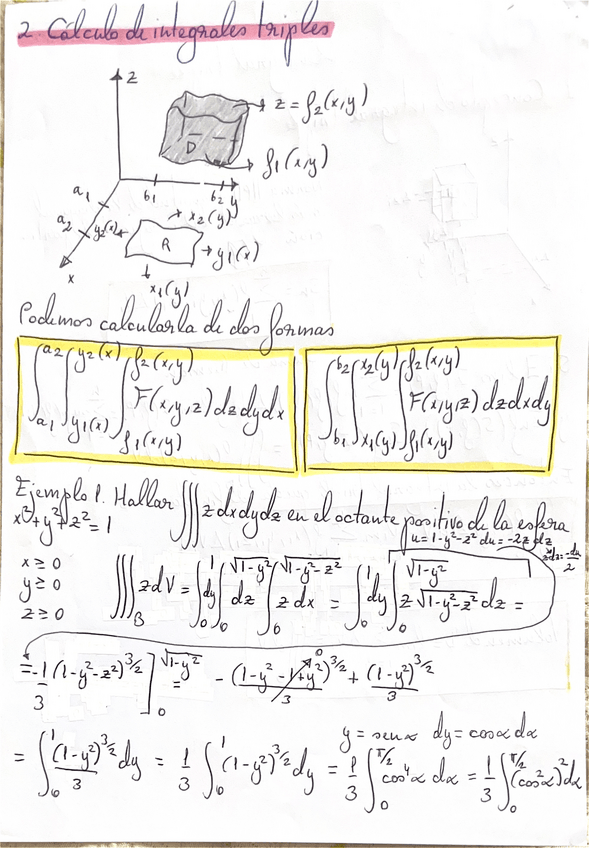 2. Cálculo de integrales triples
z
z = f₂(x,y)
D
f₁(x,y)
a₁ b₁ b₂ y
a₂ y₂(x) x₂(y)
R y₁(x)
x
x₁(y)
Podemos calcularla de dos formas
∫_{a₁}^{a₂} ∫_{y₁(x)}^{y₂(x)} ∫_{f₁(x,y)}^{f₂(x,y)} F(x,y,z) dz dy dx
∫_{b₁}^{b₂} ∫_{x₁(y)}^{x₂(y)} ∫_{f₁(x,y)}^{f₂(x,y)} F(x,y,z) dz dx dy
Ejemplo 1. Hallar ∫∫∫ z dx dy dz en el octante positivo de la esfera
x²+y²+z²=1
u = 1-y²-z² du = -2z dz
zdz = -du/2
x ≥ 0
y ≥ 0
z ≥ 0
∫∫∫_B z dV = ∫₀¹ dy ∫₀^{√(1-y²)} dz ∫₀^{√(1-y²-z²)} z dx = ∫₀¹ dy ∫₀^{√(1-y²)} z √(1-y²-z²) dz =
= -1/3 (1-y²-z²)^{3/2} ]₀^{√(1-y²)} = - (1-y²-1+y²)^{3/2}/3 0 + (1-y²)^{3/2}/3
y = sen α dy = cos α dα
= ∫₀¹ (1-y²)^{3/2}/3 dy = 1/3 ∫₀¹ (1-y²)^{3/2} dy = 1/3 ∫₀^{π/2} cos⁴α dα = 1/3 ∫₀^{π/2} (cos²α)² dα